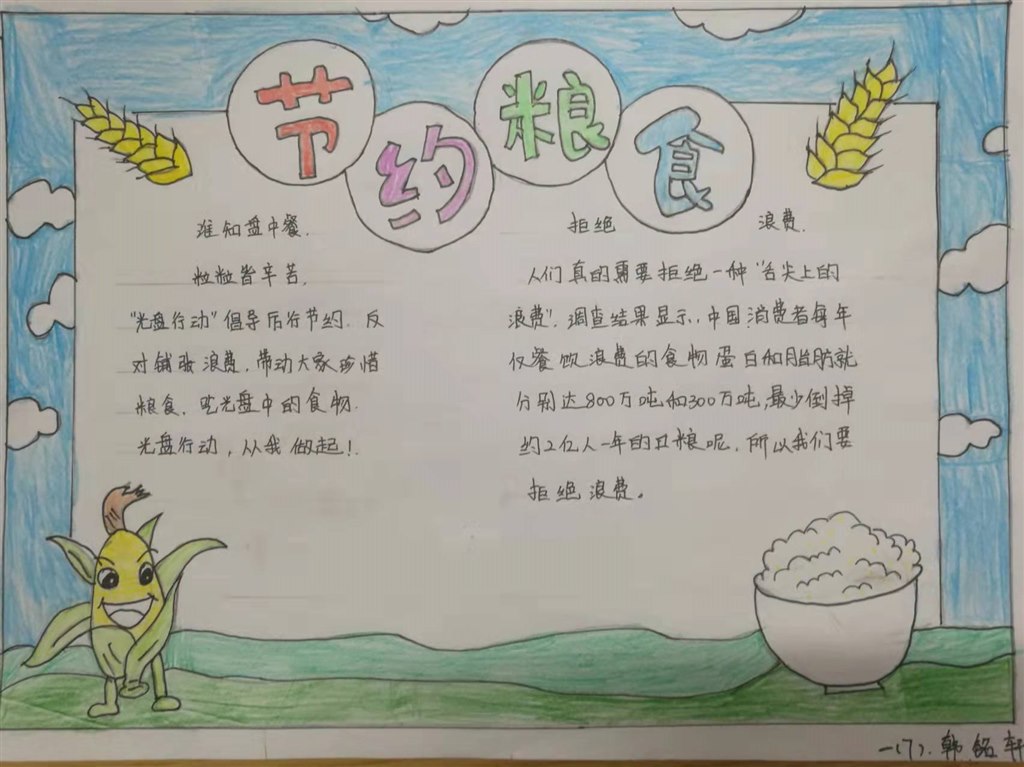 节约粮食
谁知盘中餐.
粒粒皆辛苦.
"光盘行动"倡导厉行节约.反
对铺张浪费,带动大家珍惜
粮食、吃光盘中的食物.
光盘行动,从我做起!.
拒绝 浪费.
人们真的需要拒绝一种"舌尖上的
浪费".调查结果显示,中国消费者每年
仅餐饮浪费的食物蛋白和脂肪就
分别达800万吨和300万吨,最少倒掉
约2亿人一年的口粮呢.所以我们要
拒绝浪费。
一(7).韩铭轩